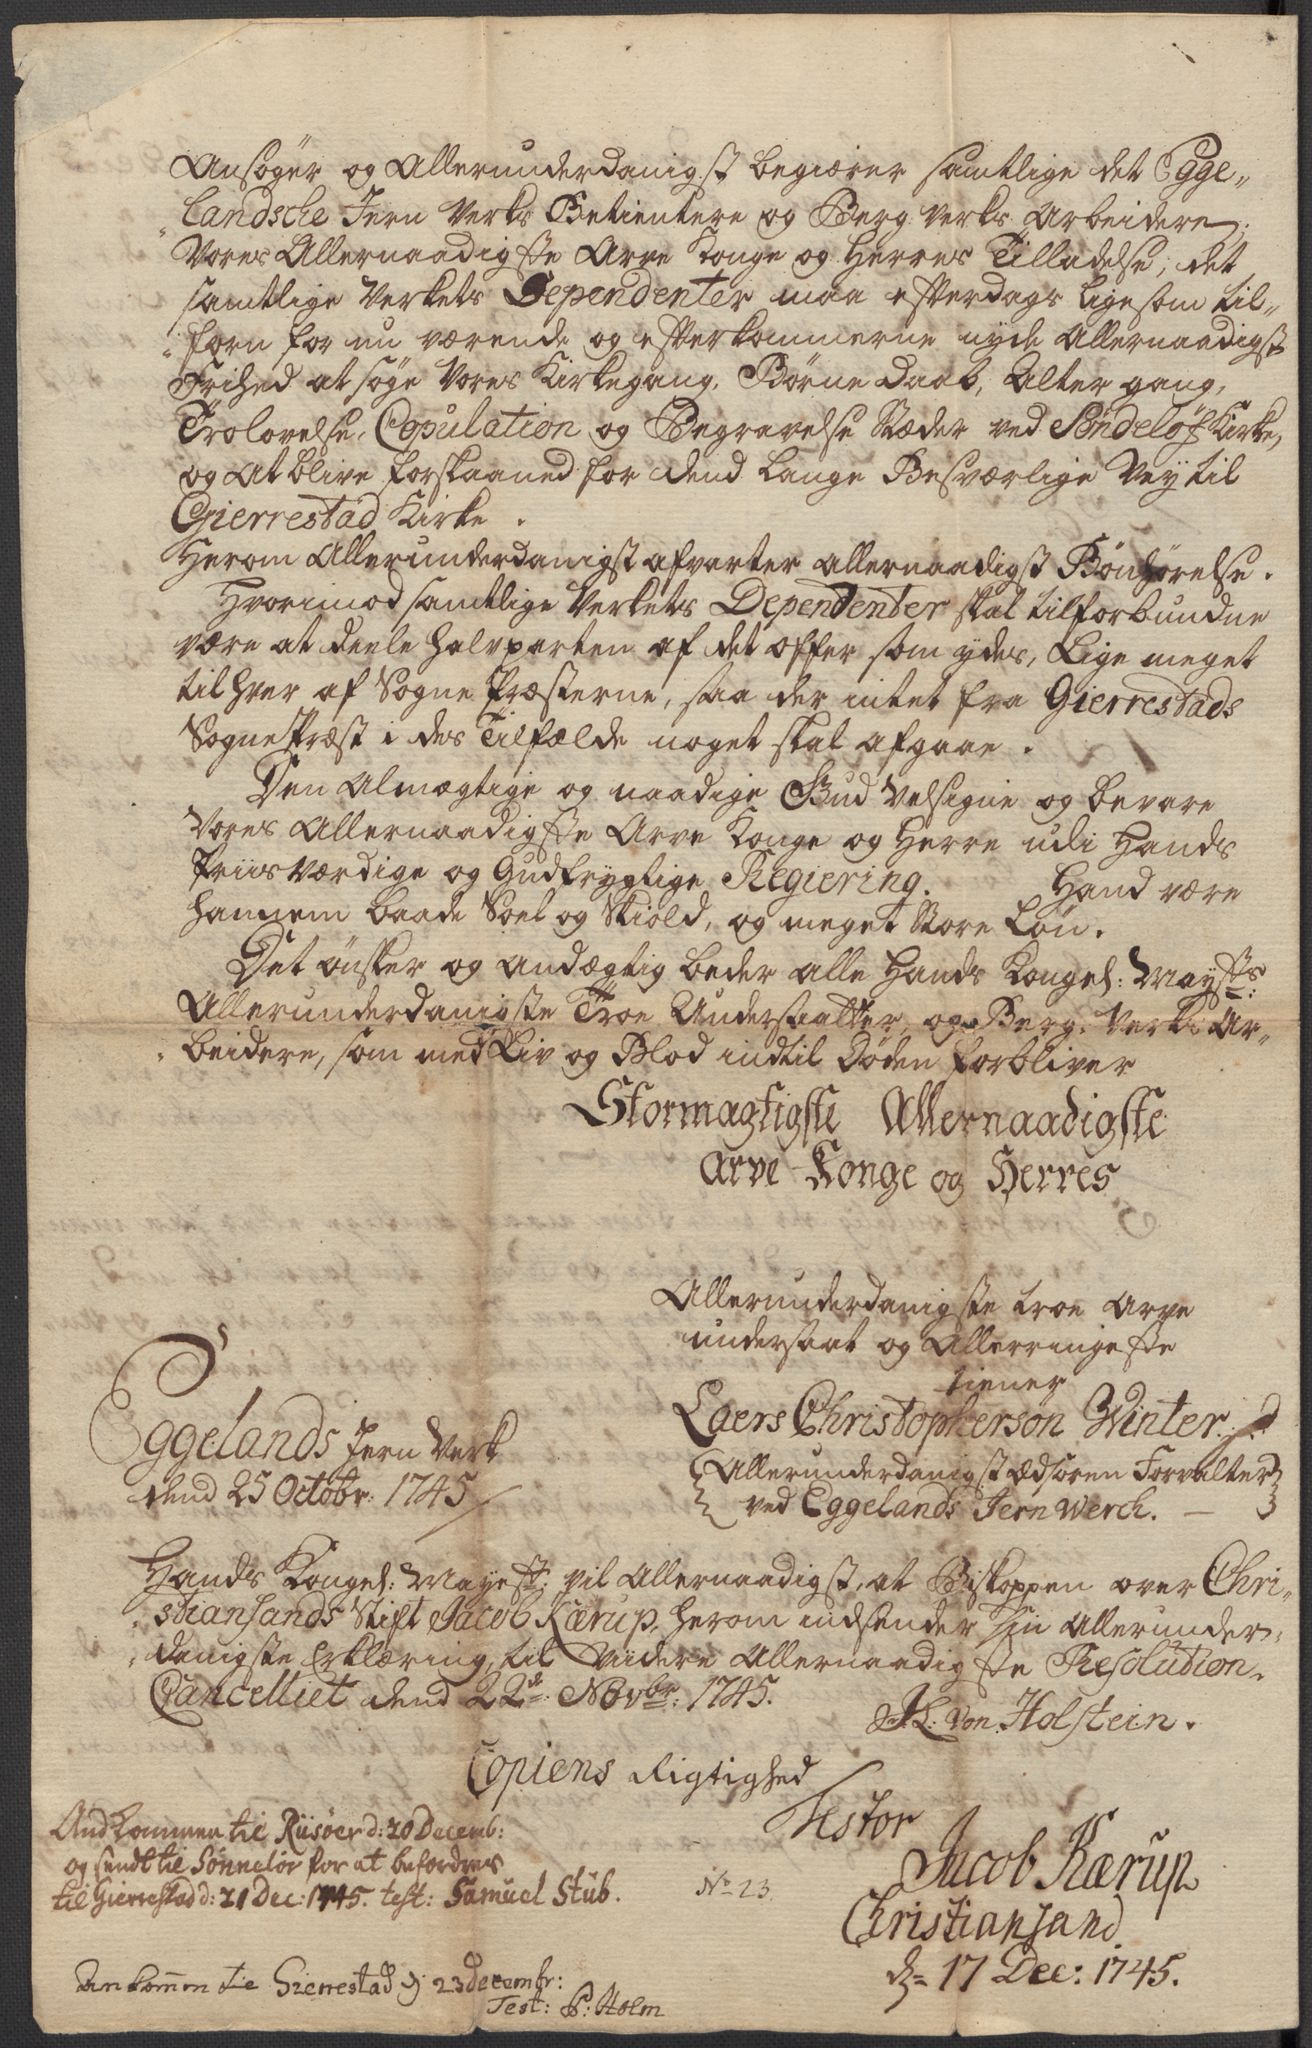 Ansøger og Allerunderdanigst begiærer samtlige det Egge„
„landsche Jern Verks Betientere og Berg Verks Arbeidere,
Vores Allernaadigste Arve Konge og Herres Tilladelse, det
samtlige Verkets Dependenter maa efterdags ligesom til„
„forn for nu værende og efterkommerne nyde Allernaadigst
Frihed at søge Vores Kirkegang, Børne Daab, Alter gang,
Trolovelse, Copulation og Begravelse Stæder ved Søndeløf Kirke,
og at blive forskaaned for dend lange Besværlige Vey til
Gierrestad Kirke.
Herom Allerunderdanigst afvarter allernaadigst Bønhørelse.
Hvorimod samtlige Verkets Dependenter skal tilforbundne
være at deele halvparten af det offer som ydes, Lige meget
til hver af Sogne Præsterne, saa der intet fra Gierrestads
Sogne Præst i des Tilfælde noget skal afgaae.
Den Almægtige og naadige Gud Velsigne og bevare
Vores Allernaadigste Arve Konge og Herre udi Hands
Priisværdige og Gudfrygtige Regiering. Hand være
hannem baade Soel og Skiold, og meget Store Løn.
Det ønsker og andægtig beder alle Hands Kongel: Maysts:
Allerunderdanigste Troe Undersaatter, og Berg Verks Ar„
„beidere, som med Liv og Blod indtil Døden forbliver
Stormagtigste Allernaadigste
Arve-Konge og Herres
Allerunderdanigste troe Arve
undersaat og Allerringeste
tiener
Laers Christophersøn Winter.
Allerunderdanigst Ædsoren Forvalter
ved Eggelands Jern Werch.
Eggelands Jern Verk
dend 25 Octobr: 1745
Hands Kongel: Mayest: vil Allernaadigst, at Biskoppen over Chri„
„stiansands Stift Jacob Kærup, herom indsender sin Allerunder„
„danigste Erklæring, til Videre Allernaadigste Resolution.
Cancelliet dend 22de Novbr: 1745.
J. L. von Holstein.
Copiens Rigtighed
Testor
Jacob Kærup
Christiansand
d= 17 Dec: 1745.
Andkommen til Riisøer d: 20 Decemb:
og sendt til Sønneløv for at befordres
til Gierrestad d: 21 Dec: 1745. test: Samuel Stub.
No 23.
Ankommen til Gierrestad d 23 Decembr:
Test: P: Holm